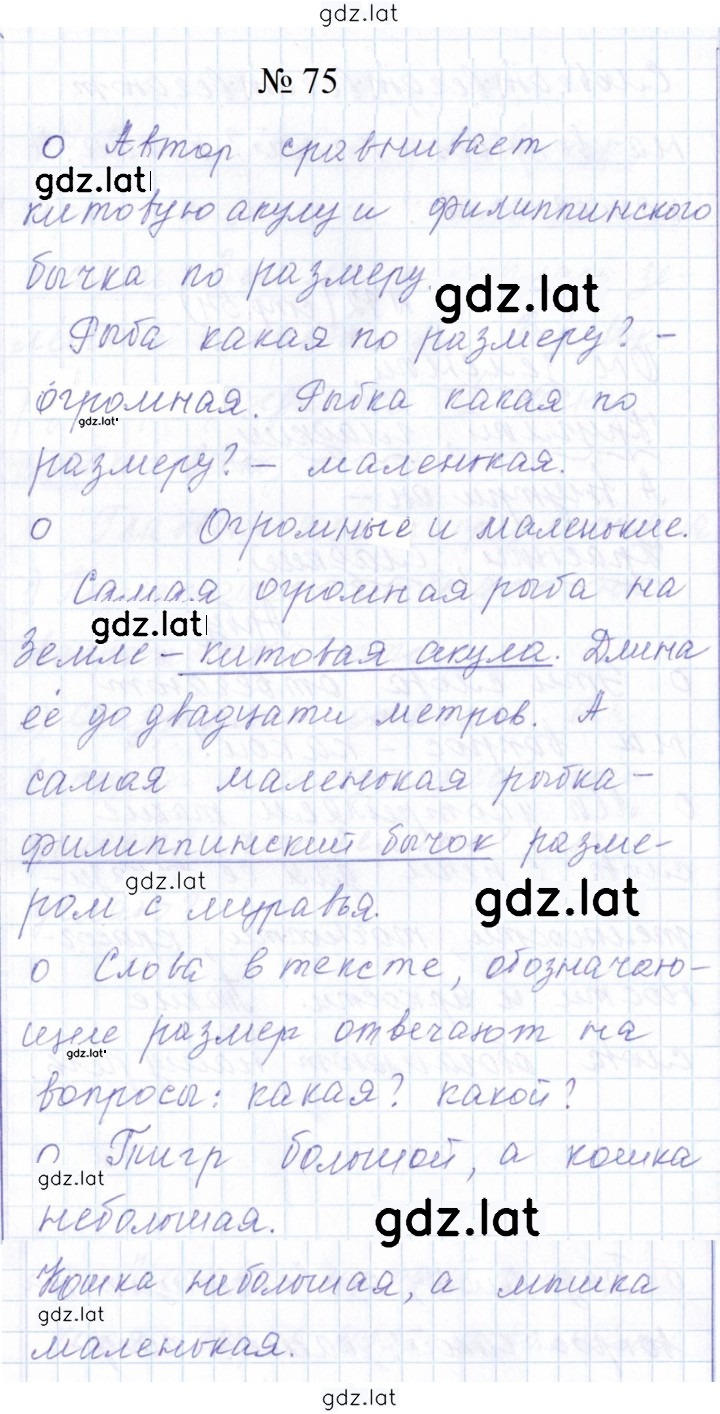 gdz.lat
№ 75
о Автор сравнивает
gdz.lat
китовую акулу и филиппинского
бычка по размеру.
gdz.lat
Рыба какая по размеру? –
огромная. Рыбка какая по
gdz.lat
размеру? – маленькая.
о Огромные и маленькие.
Самая огромная рыба на
gdz.lat
Земле – китовая акула. Длина
её до двадцати метров. А
самая маленькая рыбка –
филиппинский бычок разме-
gdz.lat
gdz.lat
ром с муравья.
о Слова в тексте, обозначаю-
щие размер отвечают на
gdz.lat
вопросы: какая? какой?
о Тигр большой, а кошка
gdz.lat
небольшая.
gdz.lat
Кошка небольшая, а мышка
gdz.lat
маленькая.
gdz.lat